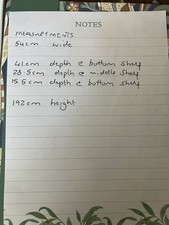 NOTES
MEASUREMENTS
54cm wide
41cm depth @ bottom shelf
28.5cm depth @ middle shelf
15.5cm depth @ bottom shelf
192cm height